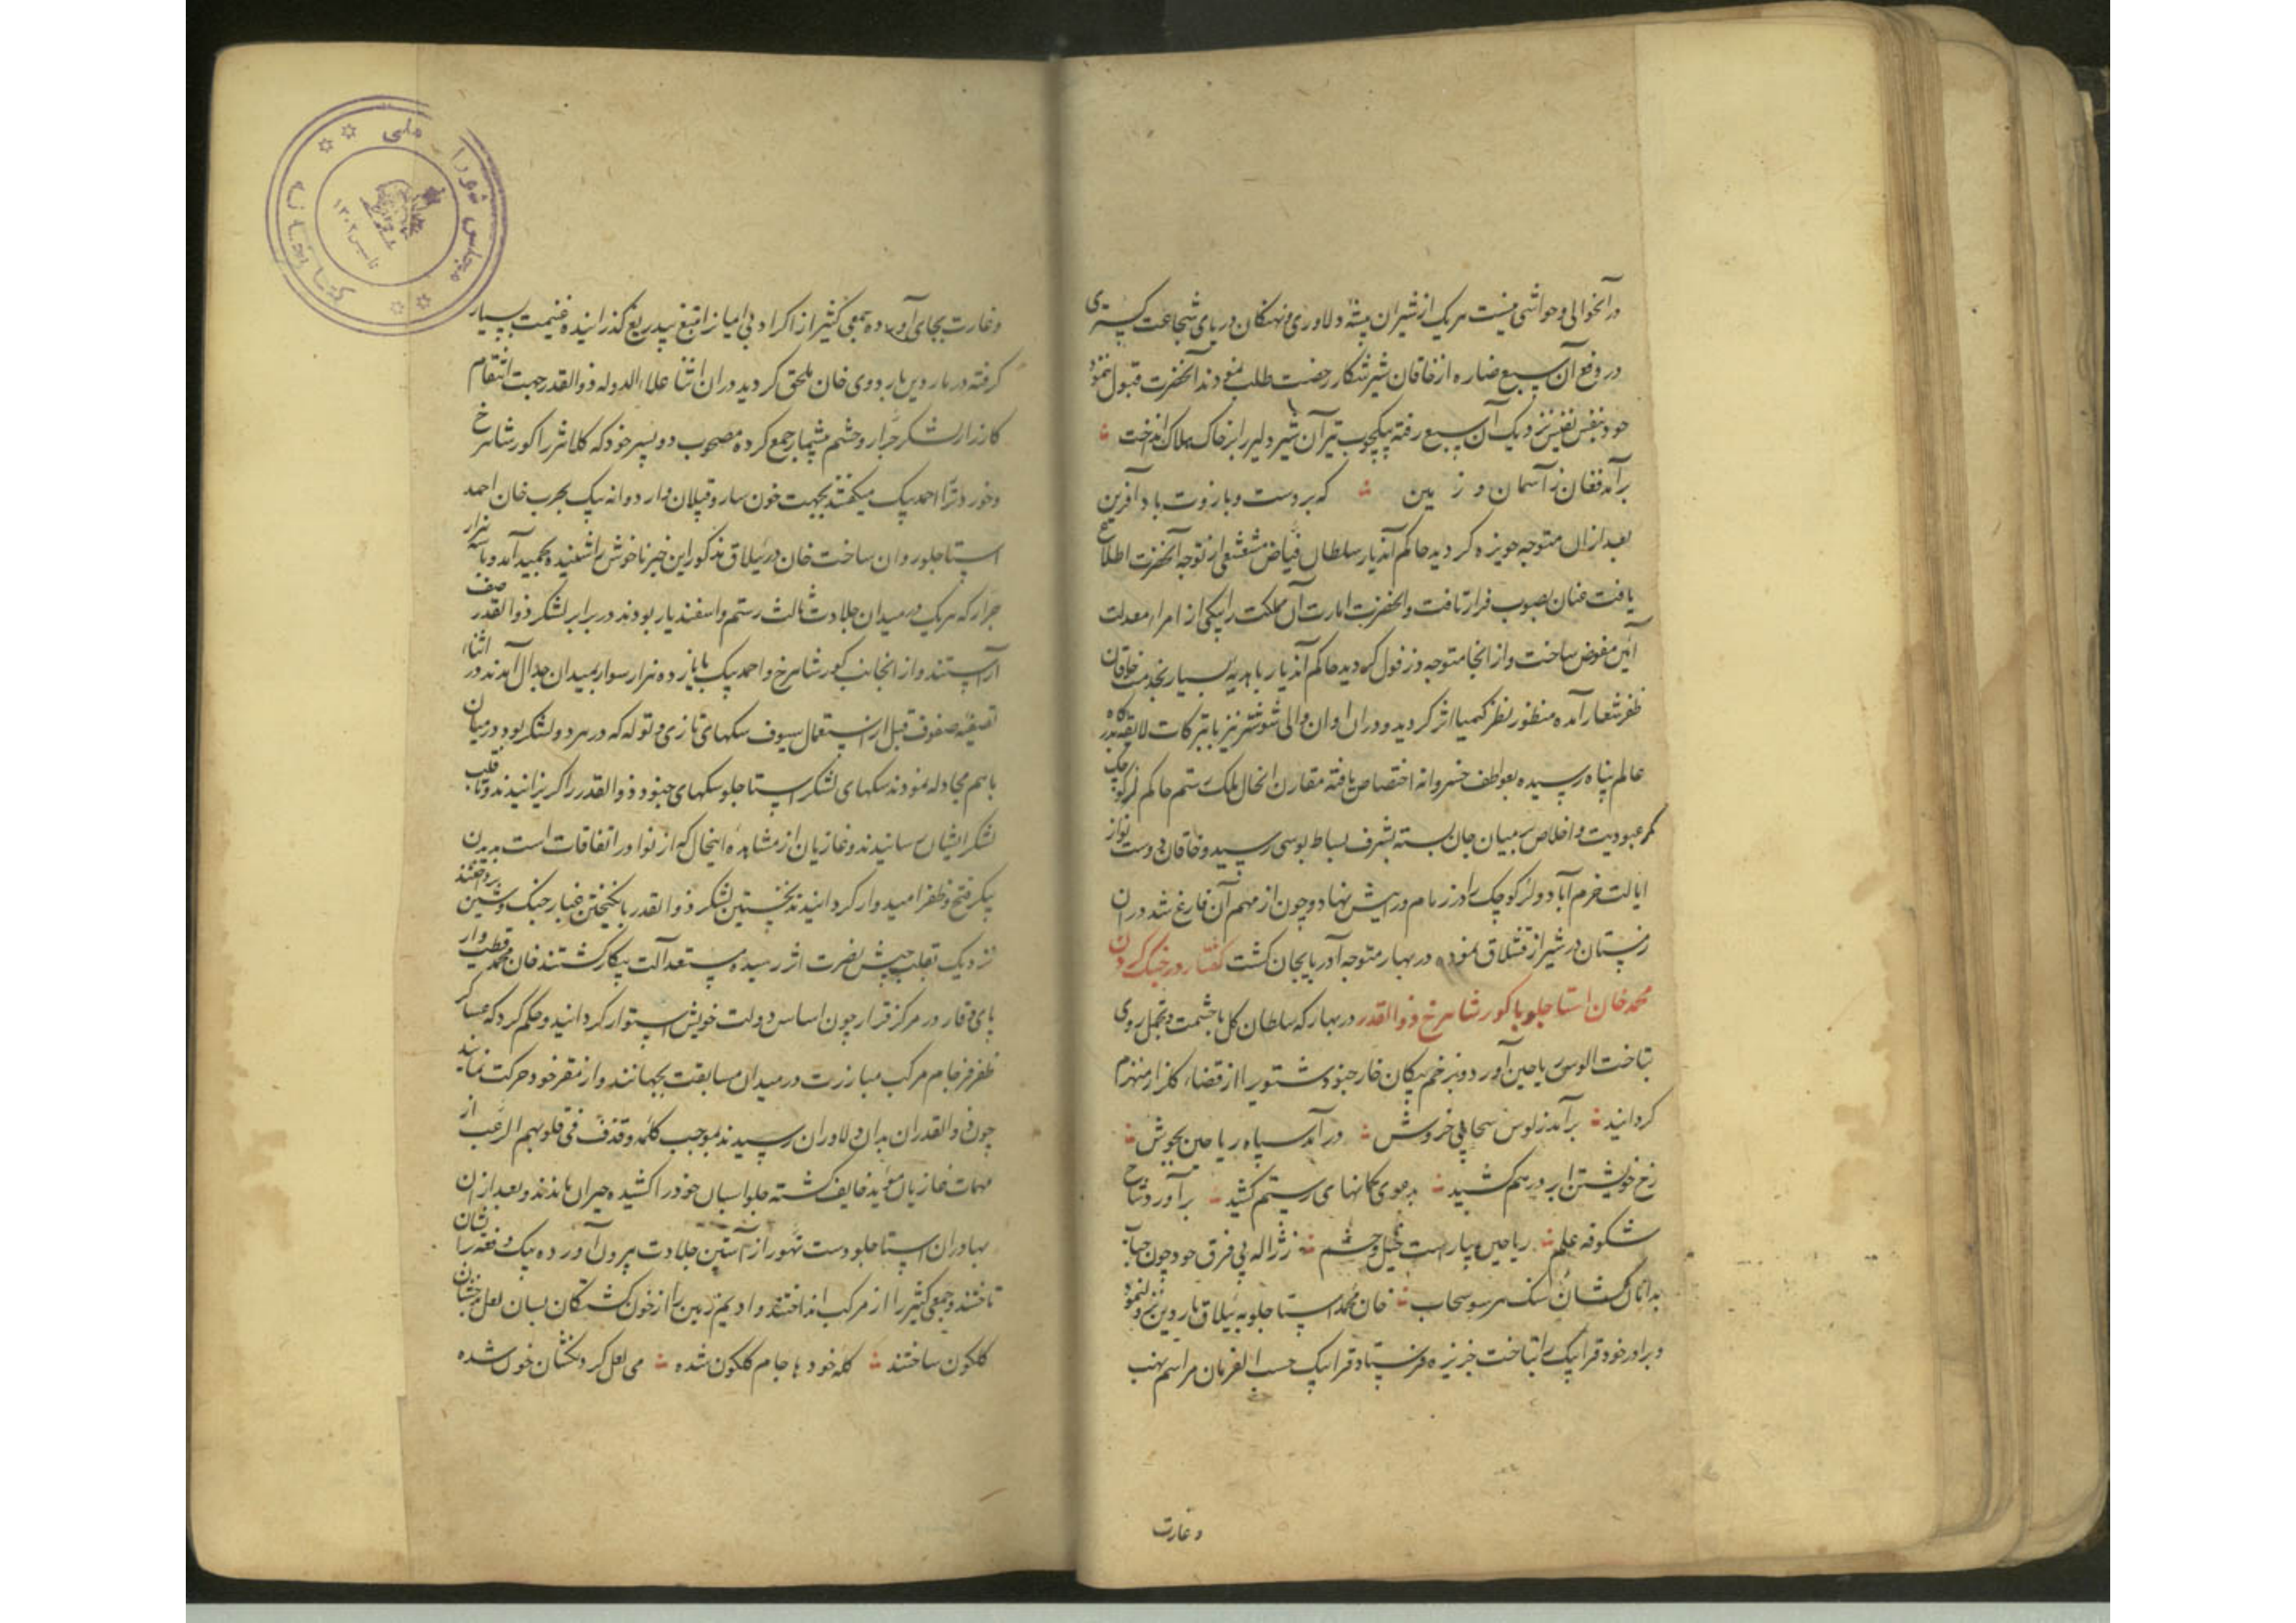 در آنحوالی و حواشی نیست هر یک از شیران بیشهٔ دلاوری و نهنگان دریای شجاعت گستری
در دفع آن سبع ضاره از خاقان شیر شکار رخصت طلب نمودند آنحضرت قبول ننمود
خود بنفس نفیس نزدیک آن سبع رفته بیکچوب تیر آن شیر دلیر را بر خاک هلاک انداخت
برآمد فغان ز آسمان و ز مین که بر دست و بازوت باد آفرین
بعد از ان متوجه حویزه کردید حاکم آندیار سلطان فیاض مشعشعی از توجه آنحضرت اطلاع
یافت عنان بصوب فرار تافت و آنحضرت امارت آن مملکت را بیکی از امراء معدلت
آئین مفوض ساخت و از انجا متوجه دزفول کردید حاکم آندیار با هدیه بسیار بخدمت خاقان
ظفر شعار آمده منظور نظر کیمیا اثر کردید و دران اوان والی شوشتر نیز با تبرکات لایقه بدرگاه
عالم پناه رسیده بعواطف خسروانه اختصاص یافته مقارن انحال ملک رستم حاکم لر کوچک
کمر عبودیت و اخلاص بر میان جان بسته بشرف بساط بوسی رسید و خاقان دوست نواز
ایالت خرم آباد و لر کوچک را در زمام ورایش نهاد و چون از مهم آن فارغ شد دران
زمستان در شیراز قشلاق نموده در بهار متوجه آذربایجان کشت گفتار در جنگ کردن
محمد خان استاجلو با کور شاهرخ ذوالقدر در بهار که سلطان کل با حشمت و تجمل روی
بتاخت الوس ریاحین آورد و بزخم پیکان خار جنود شتوی را از قضاء کلزار منهزم
کردانید برآمد ز لوس سحابی خروش در آمد سپاه ریاحین بجوش
زخ خویشتن ابر در هم کشید بدعوی کمانهای رستم کشید برآورد شاخ
شکوفه علم ریاحین بیاراست خیل و حشم ز ژاله پی فرق خود چون حباب
بدامان کشان سنک هر سو سحاب خان محمد استاجلو به ییلاق ماردین نزول نمود
و برادر خود قرا بیک را بتاخت جزیره فرستاد و قرا بیک حسب الفرمان مراسم نهب
و غارت
و غارت بجای آورده جمعی کثیر از اکراد بی امیاز را بتیغ بیدریغ کذرانیده غنیمت بسیار
کرفته در ماردین باردوی خان ملحق کردید در ان اثنا علاء الدوله ذوالقدر جهت انتقام
کارزار لشکر جرار و حشم بیشمار جمع کرده مصحوب دو پسر خود که کلانتر را کور شاهرخ
و خوردتر را احمد بیک میکفتند بجهت خون سارو قپلان و اردوانه بیک بحرب خان احمد
استاجلو روان ساخت خان در ییلاق مذکور این خبر ناخوش را شنیده بحمید آمد و با سه هزار
جرار که هر یک در میدان جلادت ثالث رستم و اسفندیار بودند در برابر لشکر ذوالقدر صف
آراستند و از انجانب کور شاهرخ و احمد بیک با پانزده هزار سوار بمیدان جدال آمدند در اثناء
تصفیه صفوف قبل از استعمال سیوف سکهای تازی و توله که در هر دو لشکر بود در میان
با هم مجادله نمودند سکهای لشکر استاجلو سکهای جنود ذوالقدر را کریزانیدند و تا قلب
لشکر ایشان رسانیدند و غازیان از مشاهده اینحال که از نوادر اتفاقات است بدیدن
پیکر فتح و ظفر امیدوار کردانیدند نخستین لشکر ذوالقدر بانکیختن غبار جنک و شین پرداختند
نزدیک بقلب جیش نصرت اثر رسیده مستعد آلت پیکار کشتند خان محمد قطب وار
پای وقار در مرکز قرار چون اساس دولت خویش استوار کردانید و حکم کرد که عساکر
ظفر فرجام مرکب مبارزت در میدان مسابقت بجهانند و از مقر خود حرکت ننمایند
چون ذوالقدران بدان دلاوران رسیدند بموجب کلمه و قذف فی قلوبهم الرعب از
مهمات غازیان مؤید خایف کشته جلو اسبان خود را کشیده حیران ماندند و بعد از ان
بهادران استاجلو دست تهور از آستین جلادت بیرون آورده بیک دفعه بر ایشان
تاختند و جمعی کثیر را از مرکب انداختند و ادیم زمین را از خون کشتکان بسان لعل بدخشان
کلکون ساختند کله خودها جام کلکون شده می لعل کردنکشان خون شده
کتابخانه مجلس شورای ملی
تاسیس ۱۳۰۲